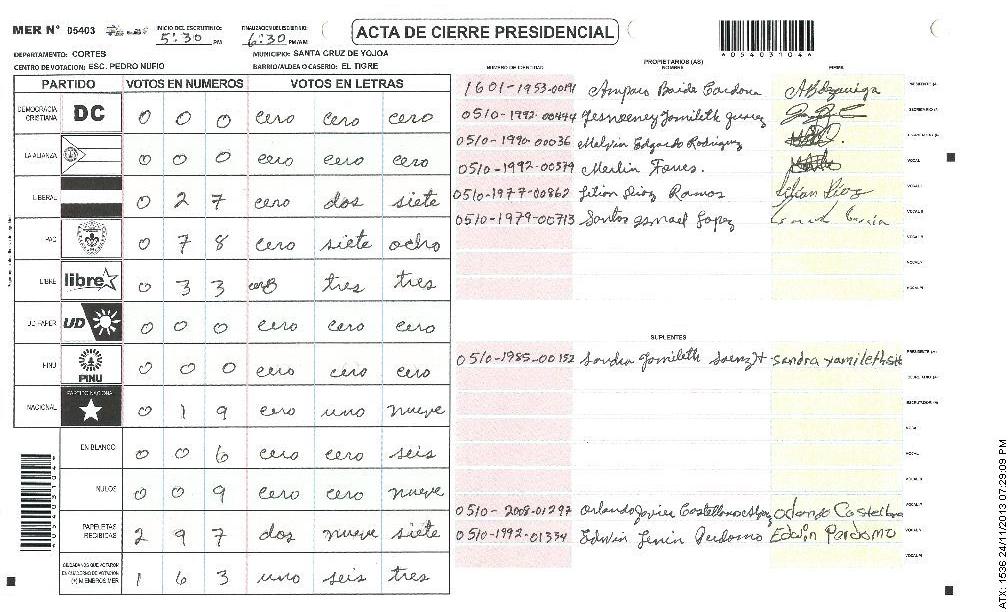 MER Nº 05403
INICIO DEL ESCRUTINIO:
5:30 PM
FINALIZACION DEL ESCRUTINIO:
6:30 PM/AM
ACTA DE CIERRE PRESIDENCIAL
DEPARTAMENTO: CORTES
MUNICIPIO: SANTA CRUZ DE YOJOA
CENTRO DE VOTACION: ESC. PEDRO NUFIO
BARRIO/ALDEA O CASERIO: EL TIGRE
PARTIDO VOTOS EN NUMEROS VOTOS EN LETRAS
DEMOCRACIA CRISTIANA DC 0 0 0 cero cero cero
LA ALIANZA 0 0 0 cero cero cero
LIBERAL 0 2 7 cero dos siete
PAC 0 7 8 cero siete ocho
LIBRE libre 0 3 3 cero tres tres
UD-FAPER UD 0 0 0 cero cero cero
PINU PINU 0 0 0 cero cero cero
NACIONAL PARTIDO NACIONAL 0 1 9 cero uno nueve
EN BLANCO 0 0 6 cero cero seis
NULOS 0 0 9 cero cero nueve
PAPELETAS RECIBIDAS 2 9 7 dos nueve siete
CIUDADANOS QUE VOTARON EN CUADERNO DE VOTACION (+) MIEMBROS MER 1 6 3 uno seis tres
PROPIETARIOS (AS)
NUMERO DE IDENTIDAD NOMBRE FIRMA
1601-1953-00191 Amparo Baide Cardona PRESIDENTE (A)
0510-1992-00444 SECRETARIO (A)
0510-1990-00036 Melvin Edgardo Rodriguez
0510-1992-00579 Merlin VOCAL
0510-1977-00862 Lilian Diaz Ramos Lilian Diaz VOCAL I
0510-1979-00713 Santos Ismael Lopez VOCAL II
VOCAL III
VOCAL IV
VOCAL V
VOCAL VI
SUPLENTES
0510-1985-00152 Sandra Yamileth sandra yamileth PRESIDENTE (A)
SECRETARIO (A)
ESCRUTADOR (A)
VOCAL
VOCAL I
VOCAL II
0510-2008-01297 Orlando Javier Castellanos Orlando Castellanos
0510-1992-01334 Edwin Lenin Perdomo Edwin Perdomo VOCAL V
VOCAL VI
ATX: 1536 24/11/2013 07:29:09 PM